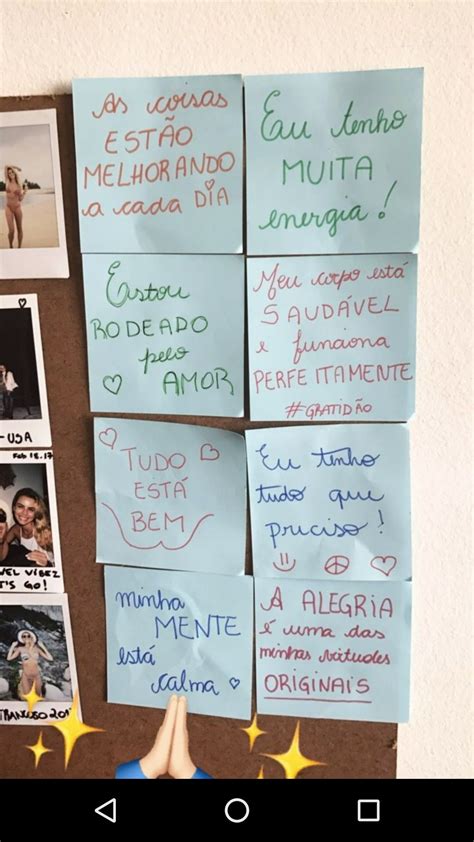 As coisas
ESTÃO
MELHORANDO
a cada DIA
Eu tenho
MUITA
energia!
Estou
RODEADO
pelo
AMOR
Meu corpo está
SAUDÁVEL
e funciona
PERFEITAMENTE
#GRATIDÃO
TUDO
ESTÁ
BEM
Eu tenho
tudo que
preciso!
minha
MENTE
está
calma
A ALEGRIA
é uma das
minhas virtudes
ORIGINAIS
-USA
Feb 18.17
VEL VIBEZ
T'S GO!